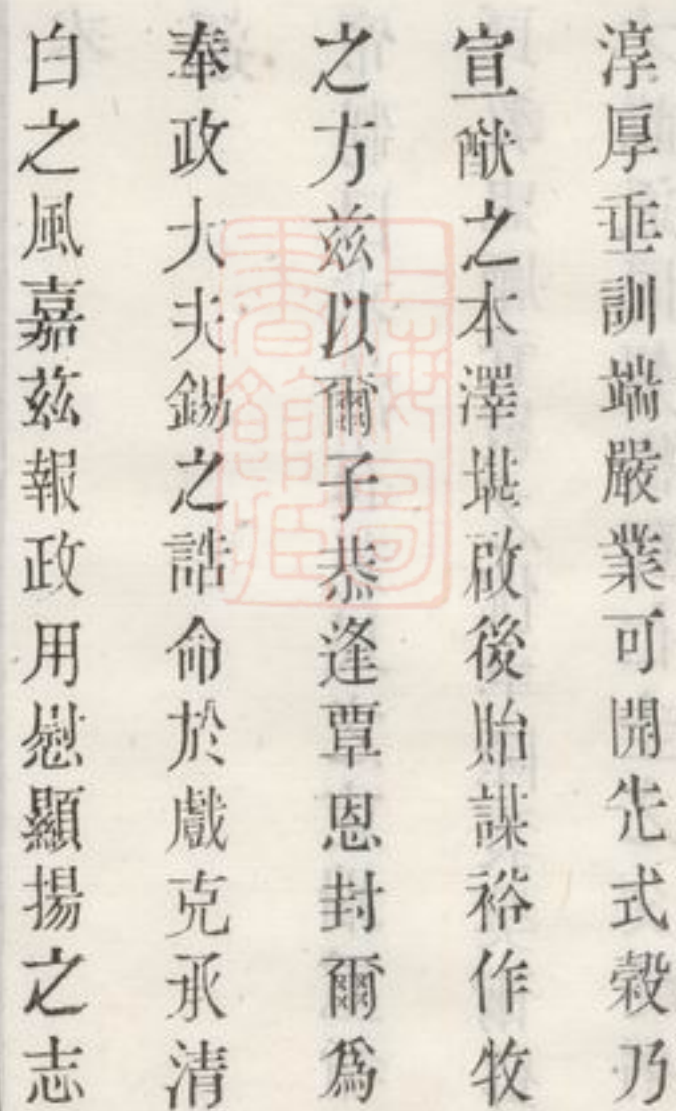 淳厚垂訓端嚴業可開先式榖乃
宣猷之本澤堪啟後貽謀裕作牧
之方茲以爾子恭逢覃恩封爾爲
奉政大夫錫之誥命於戲克承清
白之風嘉茲報政用慰顯揚之志
上海圖書館藏